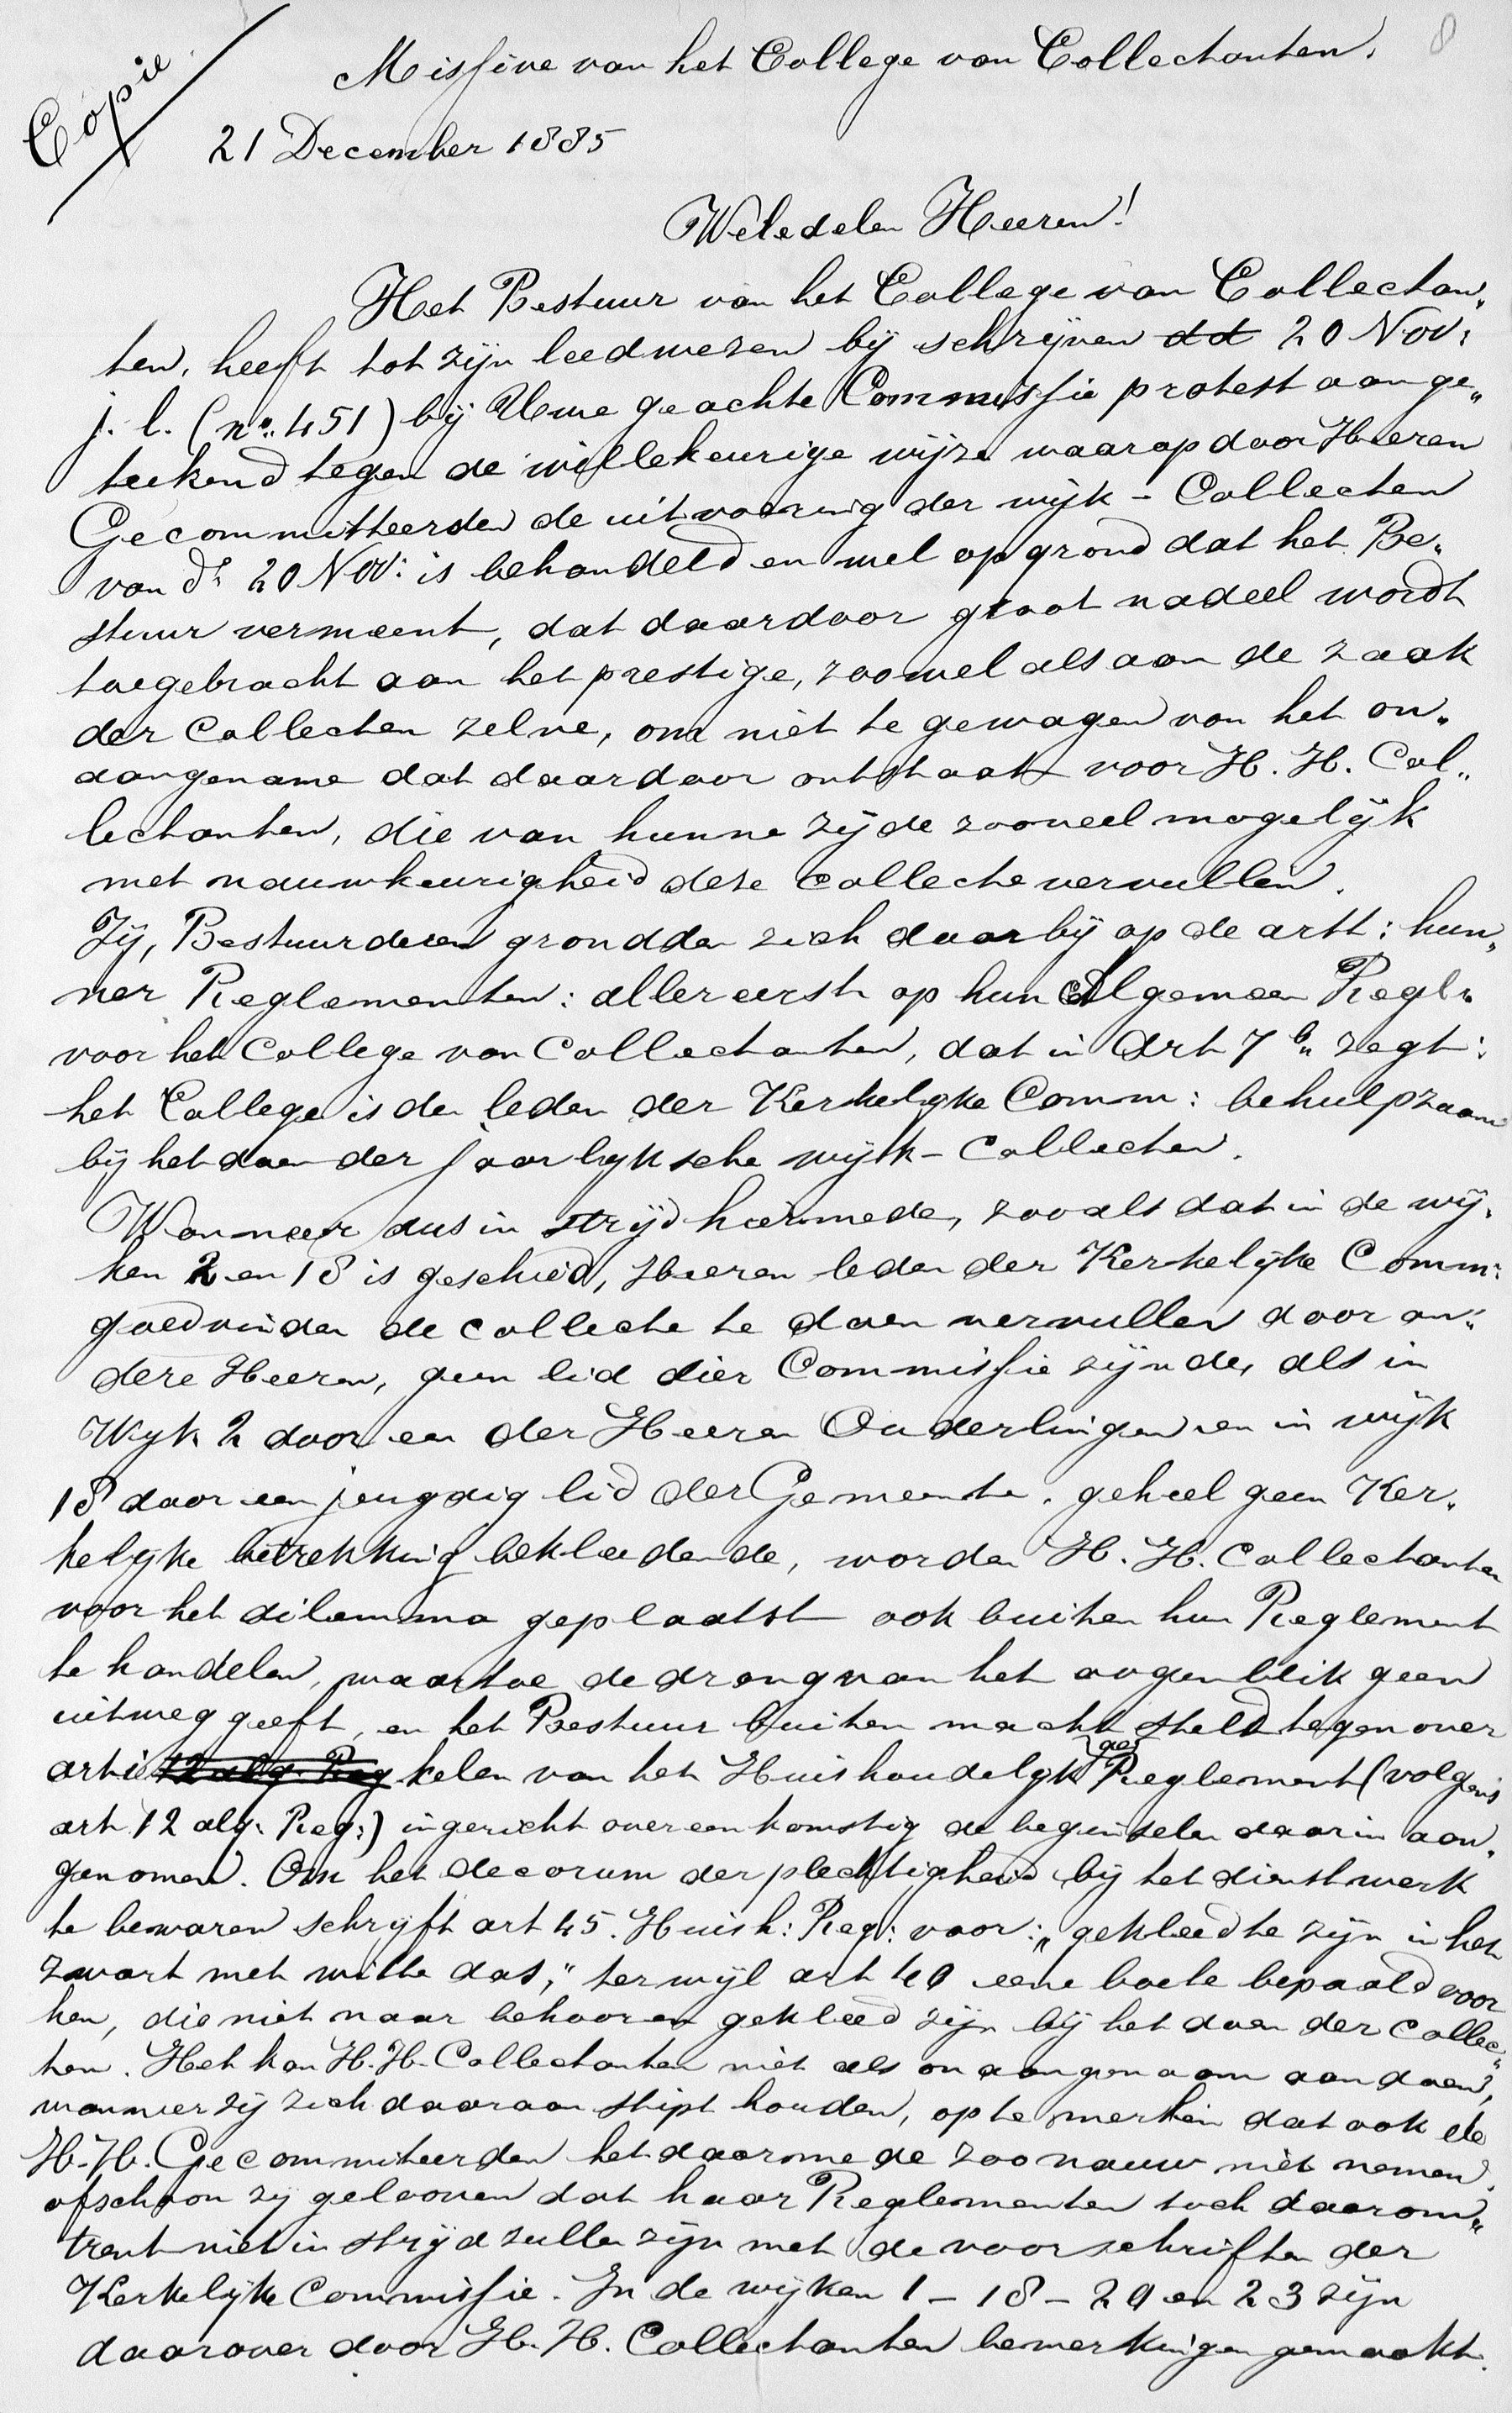 8
Copie
Missive van het College van Collectanten.
21 December 1885
Weledelen Heeren!
Het Bestuur van het College van Collectan„
ten, heeft tot zijn leedwezen bij schrijven dd 20 Nov:
j. l. (no. 451) bij Uwe geachte Commissie protest aange„
teekend tegen de willekeurige wijze waarop door Heeren
Gecommitteerden de uitvoering der wijk - Collecten
van dn 20 Nov: is behandeld en wel op grond dat het Be„
stuur vermeent, dat daardoor groot nadeel wordt
toegebracht aan het prestige, zoowel als aan de zaak
der Collecten zelve, om niet te gewagen van het on„
aangename dat daardoor ontstaat voor H. H. Col„
lectanten, die van hunne zijde zooveel mogelijk
met nauwkeurigheid deze collecte vervullen.
Zij, Bestuurderen grondden zich daarbij op de artt: hun„
ner Reglementen: allereerst op hun Algemeen Regl„
voor het College van Collectanten, dat in Art 7 b„ zegt:
het College is den leden der Kerkelijke Comm: behulpzaam
bij het doen der jaarlijksche wijk - Collecten.
Wanneer dus in strijd hiermede, zooals dat in de wij„
ken 2 en 18 is geschied, Heeren leden der Kerkelijke Comm:
goedvinden de collecte te doen vervullen door an„
dere Heeren, geen lid dier Commissie zijnde, als in
Wijk 2 door een der Heeren Ouderlingen en in wijk
18 door een jeugdig lid der Gemeente, geheel geen Ker„
kelijke betrekking bekleedende, worden H. H. Collectanten
voor het dilemma geplaatst ook buiten hun Reglement
te handelen, waartoe de drang van het oogenblik geen
uitweg geeft, en het Bestuur buiten macht steld tegenover
arti 12 alg. Reg kelen van het Huishoudelijk Reglement (volgens
art 12 alg: Reg:) ingericht overeenkomstig de beginselen daarin aan„
genomen. Om het decorum der plechtigheid bij het dienstwerk
te bewaren schrijft art 45. Huish: Reg: voor: „gekleed te zijn in het
zwart met witte das," terwijl art 49 eene boete bepaald voor
hen, die niet naar behooren gekleed zijn bij het doen der Collec„
ten. Het kan H. H. Collectanten niet als onaangenaam aandoen,
wanneer zij zich daaraan stipt houden, op te merken dat ook de
H. H. Gecommiteerden het daarmede zoo nauw niet nemen,
ofschoon zij gelooven dat haar Reglementen toch daarom„
trent niet in strijd zullen zijn met de voorschriften der
Kerkelijke Commissie. In de wijken 1 - 18 - 29 en 23 zijn
daarover door H. H. Collectanten bemerkingen gemaakt.